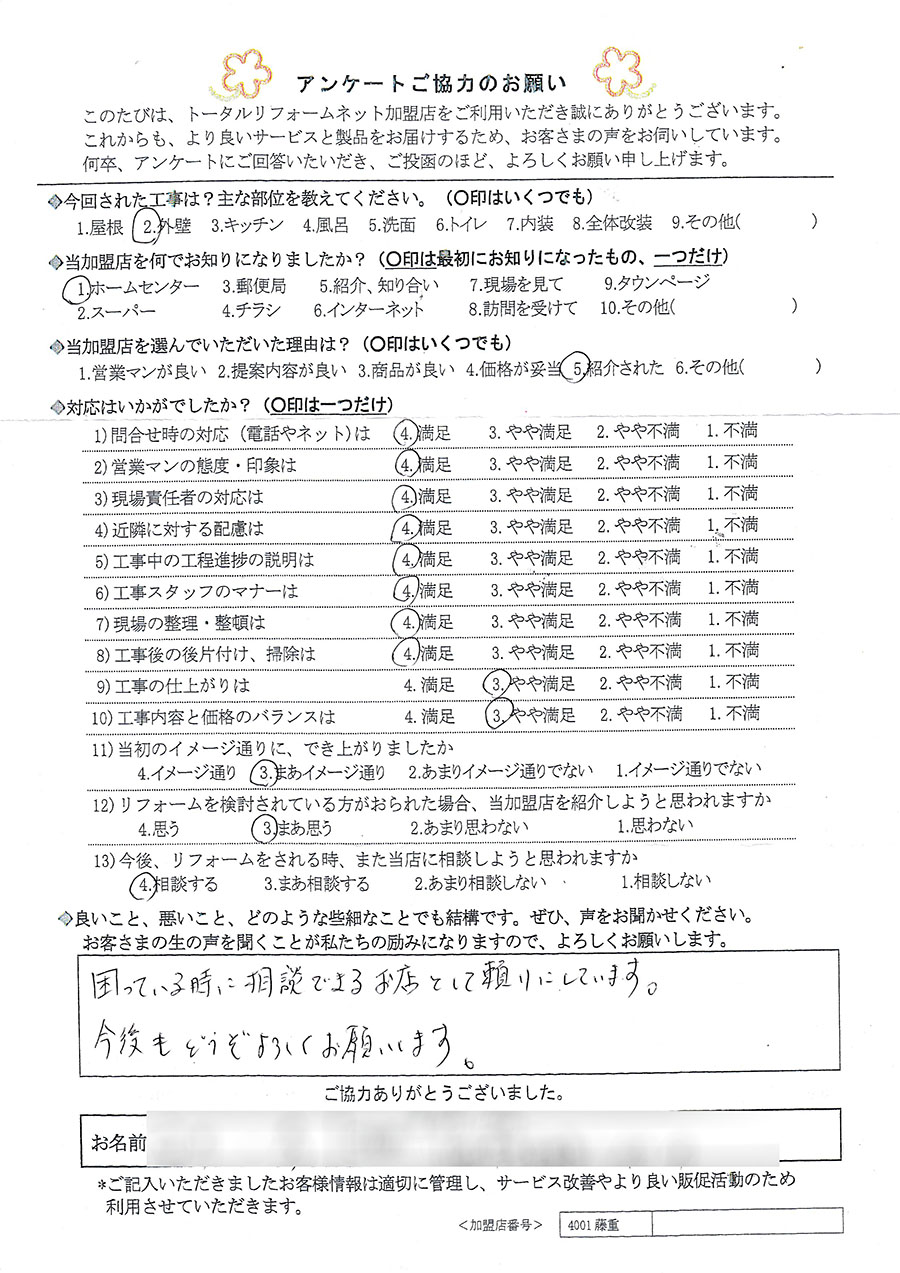 アンケートご協力のお願い
このたびは、トータルリフォームネット加盟店をご利用いただき誠にありがとうございます。
これからも、より良いサービスと製品をお届けするため、お客さまの声をお伺いしています。
何卒、アンケートにご回答いたいだき、ご投函のほど、よろしくお願い申し上げます。
◆今回された工事は？主な部位を教えてください。（〇印はいくつでも）
1.屋根 2.外壁 3.キッチン 4.風呂 5.洗面 6.トイレ 7.内装 8.全体改装 9.その他( )
◆当加盟店を何でお知りになりましたか？（〇印は最初にお知りになったもの、一つだけ）
1.ホームセンター 3.郵便局 5.紹介、知り合い 7.現場を見て 9.タウンページ
2.スーパー 4.チラシ 6.インターネット 8.訪問を受けて 10.その他( )
◆当加盟店を選んでいただいた理由は？（〇印はいくつでも）
1.営業マンが良い 2.提案内容が良い 3.商品が良い 4.価格が妥当 5.紹介された 6.その他( )
◆対応はいかがでしたか？（〇印は一つだけ）
1)問合せ時の対応（電話やネット)は 4.満足 3.やや満足 2.やや不満 1.不満
2)営業マンの態度・印象は 4.満足 3.やや満足 2.やや不満 1.不満
3)現場責任者の対応は 4.満足 3.やや満足 2.やや不満 1.不満
4)近隣に対する配慮は 4.満足 3.やや満足 2.やや不満 1.不満
5)工事中の工程進捗の説明は 4.満足 3.やや満足 2.やや不満 1.不満
6)工事スタッフのマナーは 4.満足 3.やや満足 2.やや不満 1.不満
7)現場の整理・整頓は 4.満足 3.やや満足 2.やや不満 1.不満
8)工事後の後片付け、掃除は 4.満足 3.やや満足 2.やや不満 1.不満
9)工事の仕上がりは 4.満足 3.やや満足 2.やや不満 1.不満
10)工事内容と価格のバランスは 4.満足 3.やや満足 2.やや不満 1.不満
11)当初のイメージ通りに、でき上がりましたか
4.イメージ通り 3.まあイメージ通り 2.あまりイメージ通りでない 1.イメージ通りでない
12)リフォームを検討されている方がおられた場合、当加盟店を紹介しようと思われますか
4.思う 3.まあ思う 2.あまり思わない 1.思わない
13)今後、リフォームをされる時、また当店に相談しようと思われますか
4.相談する 3.まあ相談する 2.あまり相談しない 1.相談しない
◆良いこと、悪いこと、どのような些細なことでも結構です。ぜひ、声をお聞かせください。
お客さまの生の声を聞くことが私たちの励みになりますので、よろしくお願いします。
困っている時に相談できるお店として頼りにしています。
今後もどうぞよろしくお願いします。
ご協力ありがとうございました。
お名前
*ご記入いただきましたお客様情報は適切に管理し、サービス改善やより良い販促活動のため
利用させていただきます。
＜加盟店番号＞ 4001藤重